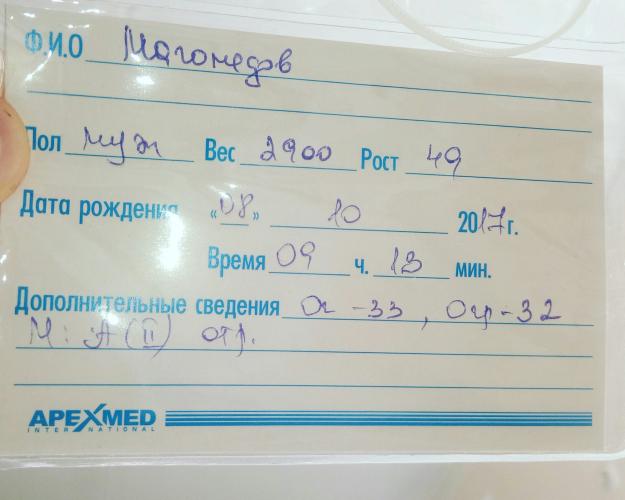 Ф.И.О Магомедов
Пол муж Вес 2900 Рост 49
Дата рождения «08» 10 2017г.
Время 09 ч. 13 мин.
Дополнительные сведения Ог-33, Огр-32
М: A(II) отр.
APEXMED
INTERNATIONAL